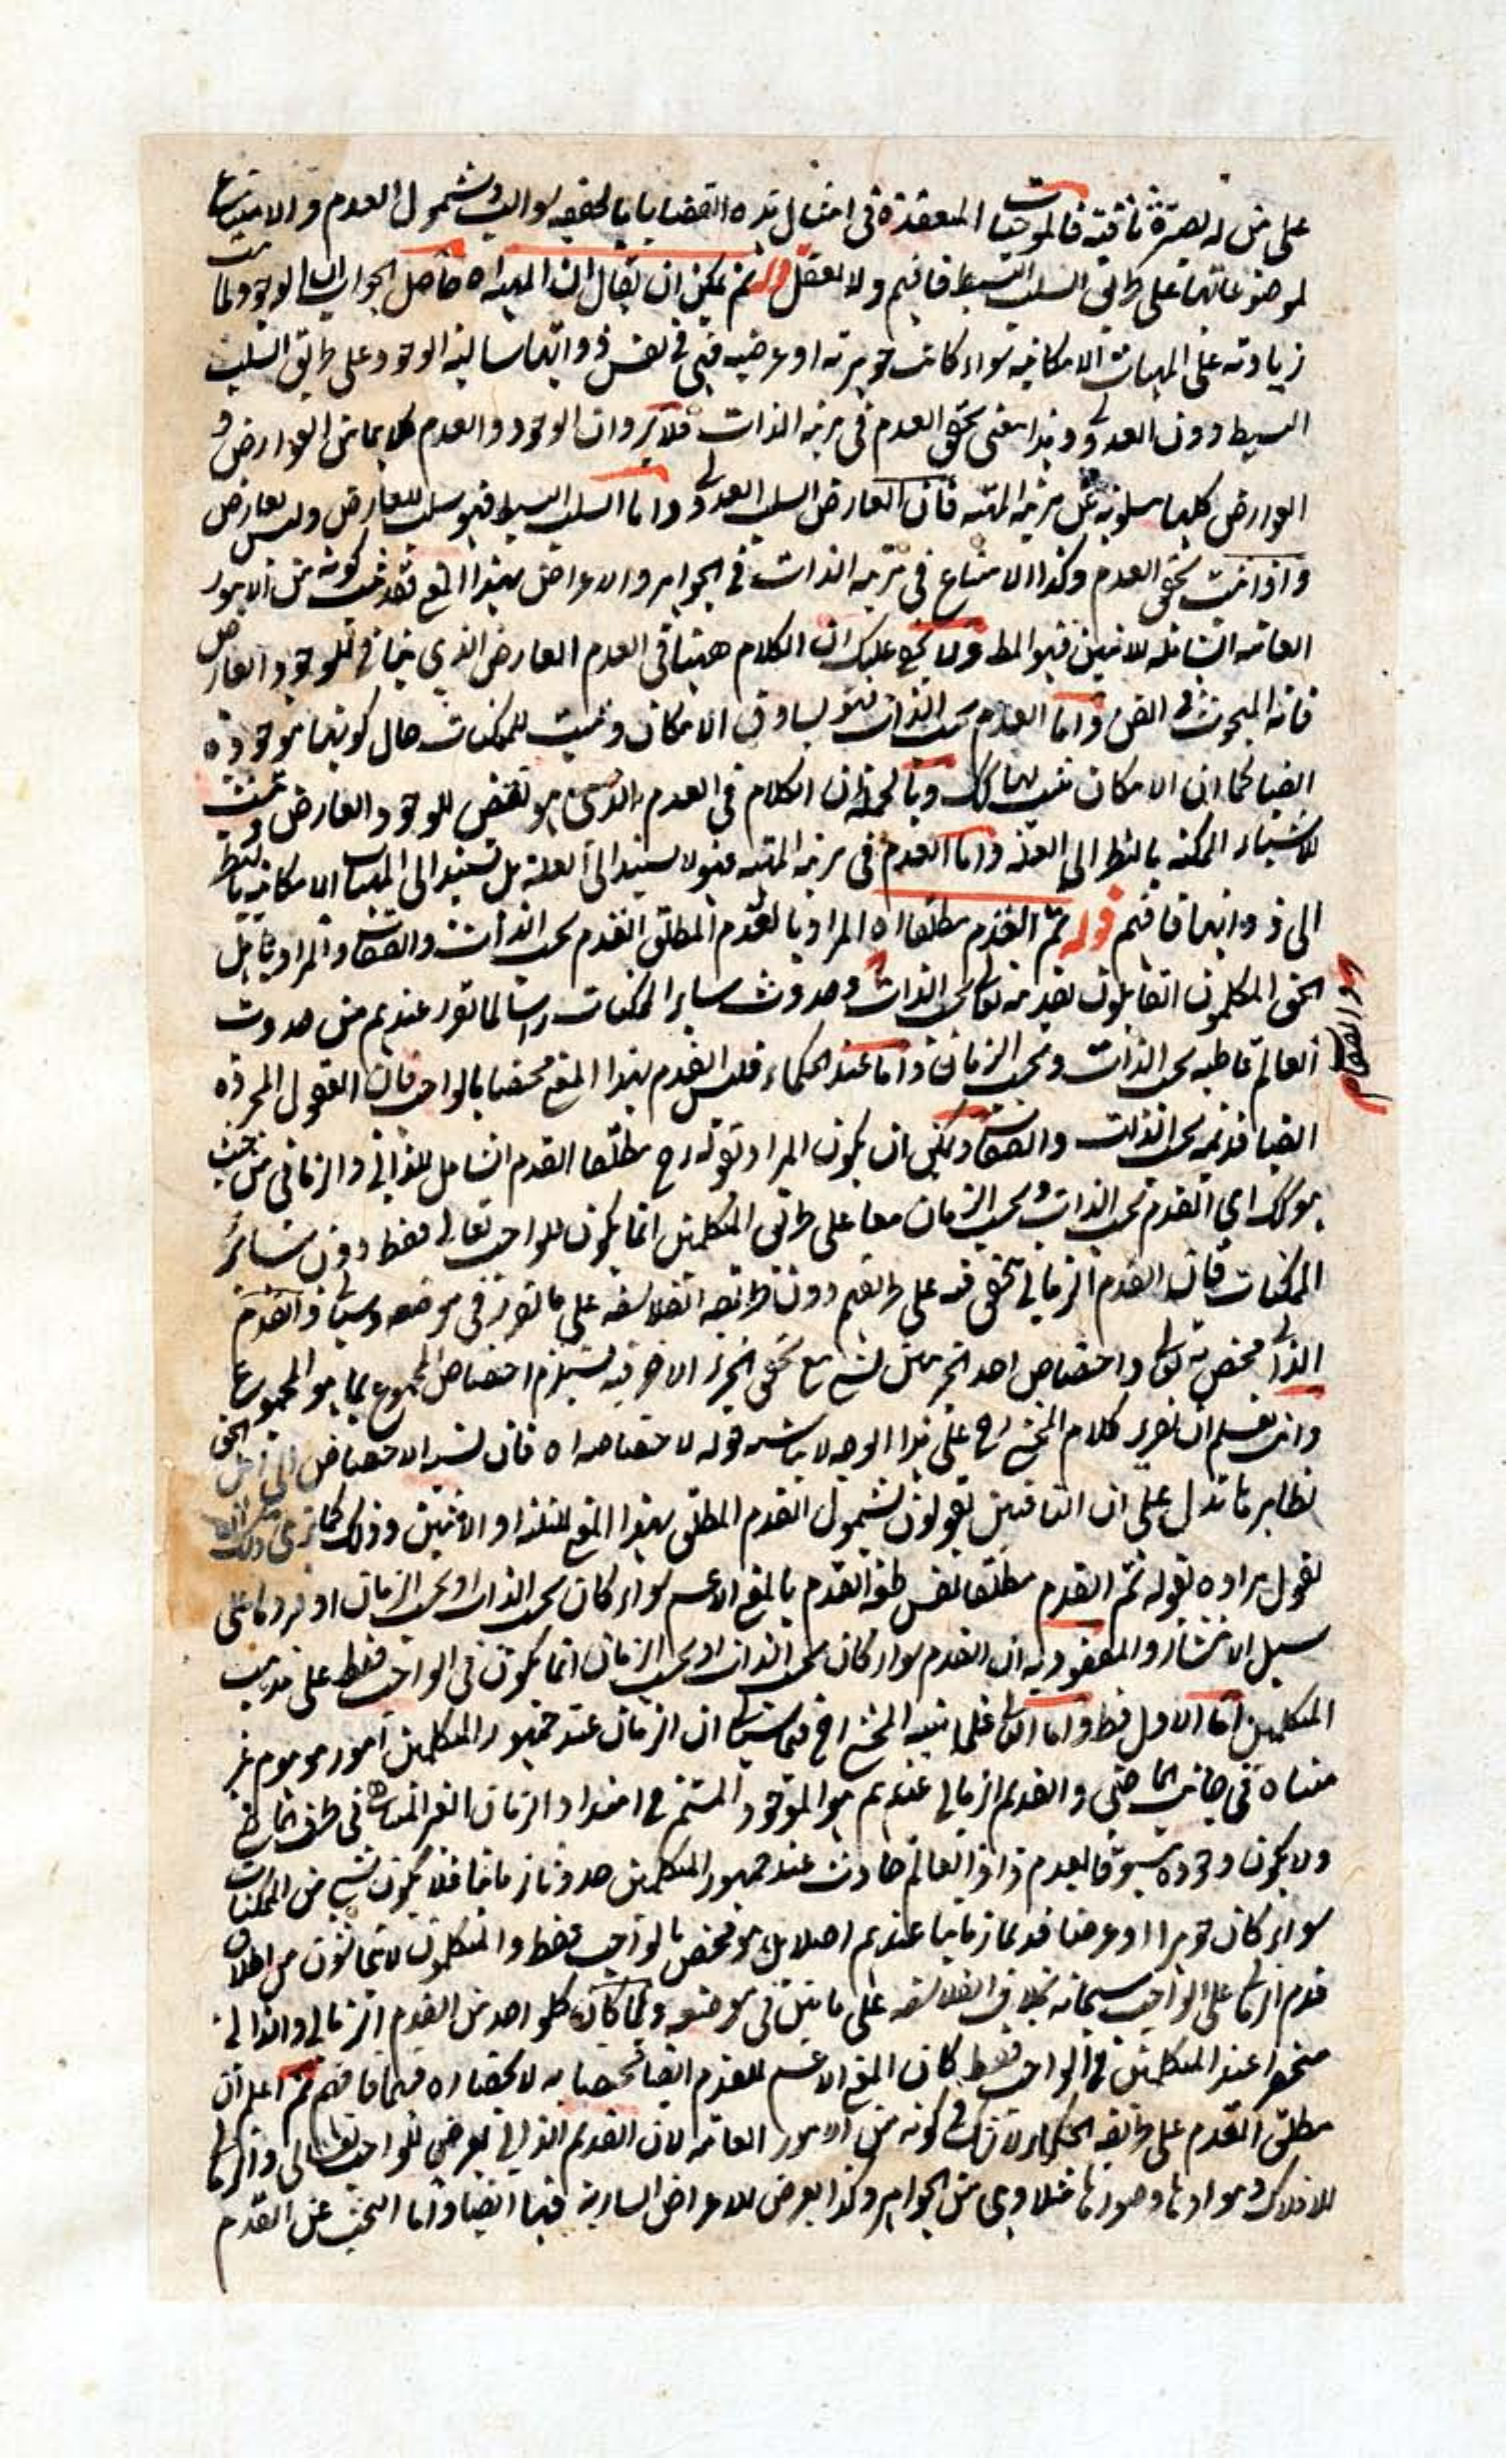 على من له بصيرة ثاقبة فالموجبات المعقدة في امثال هذه القضايا بالحقيقة سوالب وشمول العدم والامتناع
لموضوعاتها على طريق السلب البسيط فافهم ولا تغفل قوله ثم يمكن ان يقال ان المهية اه حاصل الجواب ان الوجود لما ثبت
زيادته على المهيات الامكانيه سواء كانت جوهرية او عرضيه فهي في نفس ذواتها سالبة الوجود على طريق السلب
البسيط دون العدولي وهذا معنى تحقق العدم في مرتبة الذات فلا يرد ان الوجود والعدم كلاهما من العوارض و
العوارض كلها مسلوبة عن مرتبه المهية فان العارض السلب العدولي واما السلب البسيط فهو سلب للعارض وليس بعارض
واذا ثبت تحقق العدم وكذا الامتناع في مرتبه الذات في الجواهر والاعراض بهذا المعنى فقد ثبت كونه من الامور
العامه الشاملة للاثنين فهو المط ولا يخفى عليك ان الكلام ههنا في العدم العارض الذي ينافي للوجود العارض
فانه المبحوث في الفن واما العدم بحسب الذات فهو يساوق الامكان ويثبت للممكنات حال كونها موجودة
ايضا كما ان الامكان يثبت لها كك وبالجملة ان الكلام في العدم الذي هو نقيض للوجود العارض ويثبت
للاشياء الممكنه بالنظر الى العلة واما العدم في مرتبه المهية فهو لا يستند الى العلة بل يستند الى المهيات الامكانيه بالنظر
الى ذواتها فافهم قوله ثم القدم مطلقا اه المراد بالقدم المطلق القدم بحسب الذات والصفات والمراد باهل
الحق المتكلمون القائلون بقدمه تعالى بحسب الذات وحدوث ساير الممكنات راسا لما تقرر عندهم من حدوث
والصفات
العالم قاطبه بحسب الذات وبحسب الزمان واما عند الحكماء فليس القدم بهذا المعنى مختصا بالواجب فان العقول المجردة
ايضا قديمه بحسب الذات والصفات ويمكن ان يكون المراد بقوله رح مطلقا القدم الشامل للذاتي والزماني من حيث
هو كك اي القدم بحسب الذات وبحسب الزمان معا على طريق المتكلمين انما يكون للواجب تعالى فقط دون سائر
الممكنات فان القدم الزماني يتحقق فيه على طريقهم دون طريقه الفلاسفه على ما تقرر في موضعه وسياتي والقدم
الذاتي مختص به تعالى واختصاص احد الجزئين لشيء مع تحقق الجزء الاخر فيه يستلزم اختصاص المجموع بما هو المجموع
وانت تعلم ان تقرير كلام المحشي رح على هذا الوجه لا يناسبه قوله لاختصاصه اه فان نسبة الاختصاص الى اهل الحق
بظاهرها تدل على ان الباقين يقولون بشمول القدم المطلق بهذا المعنى للثلثة او الاثنين وذلك كما ترى ولك ان
تقول مراده بقوله ثم القدم مطلقا نفس طبيعة القدم بالمعنى الاعم سواء كان بحسب الذات او بحسب الزمان او فرد ما على
سبيل الانتشار والمقصود به ان القدم سواء كان بحسب الذات او بحسب الزمان انما يكون في الواجب فقط على مذهب
المتكلمين اما الاول فظ واما الثاني فلما نبه المحشي رح فيما سياتي ان الزمان عند جمهور المتكلمين امور موهوم غير
متناه في جانب الماضي والقديم الزماني عندهم هو الموجود المستمر في امتداد الزمان الغير المتناهي في طرف الماضي
ولا يكون وجوده مسبوقا بالعدم واذ العالم حادث عند جمهور المتكلمين حدوثا زمانيا فلا يكون شيء من الممكنات
سواء كان جوهرا او عرضا قديما زمانيا عندهم اصلا بل هو مختص بالواجب فقط والمتكلمون لا يتحاشون من اطلاق
قدم الزماني على الواجب سبحانه بخلاف الفلاسفه على ما بين في موضعه ولما كان كلواحد من القدم الزماني والذاتي
منحصرا عند المتكلمين في الواجب فقط كان المعنى الاعم للقدم ايضا مختصا به لانحصاره فيهما فافهم ثم اعلم ان
مطلق القدم على طريقه الحكماء لا شك في كونه من الامور العامه لان القديم الذاتي يعرض للواجب تعالى والزماني
للافلاك وموادها وصورها مثلا وهي من الجواهر وكذا يعرض للاعراض السارية فيها ايضا واما البحث عن القدم